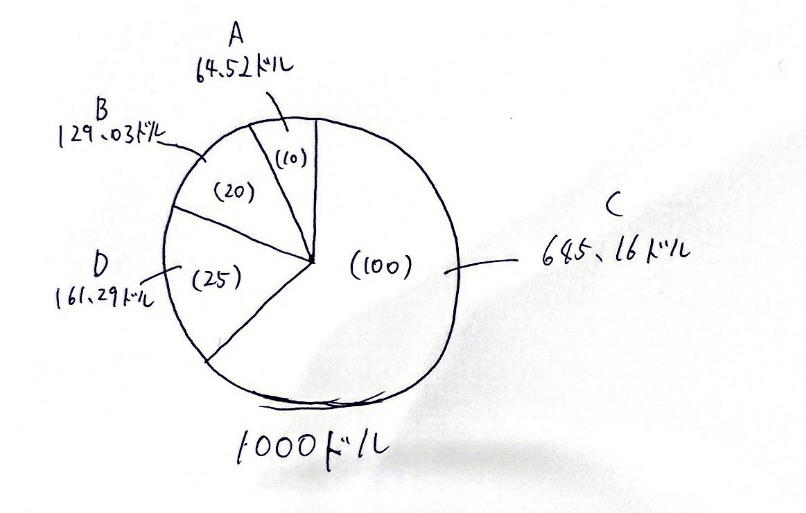 A
64.52ドル
B
129.03ドル
(10)
(20)
C
645.16ドル
(100)
D
161.29ドル
(25)
1000ドル